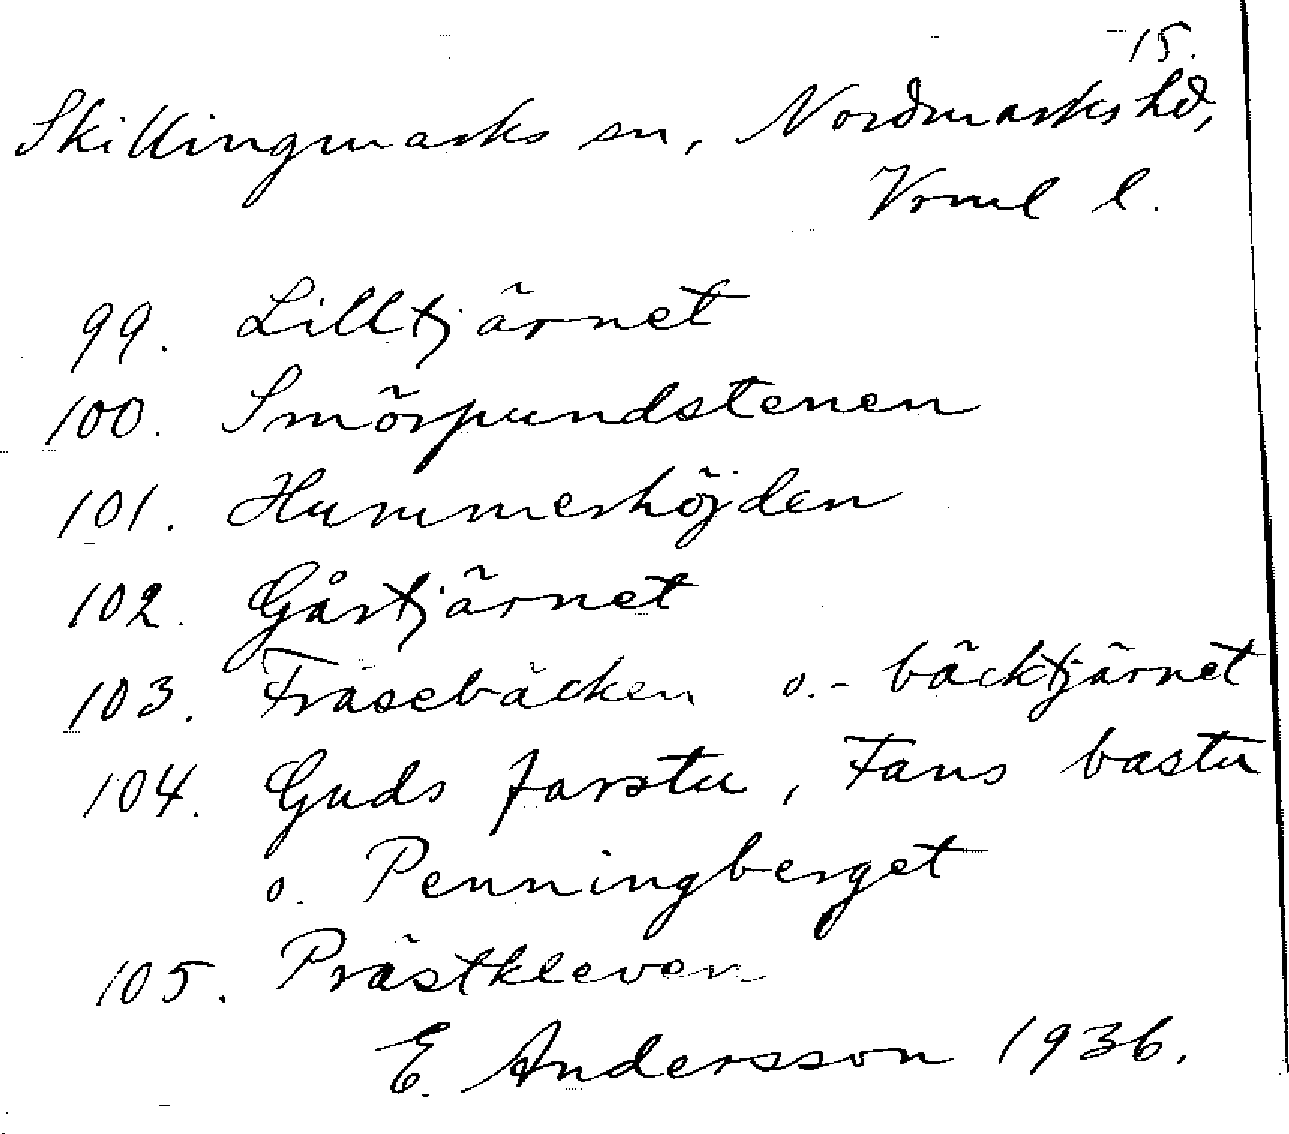 15.
Skillingmarks sn, Nordmarks hd,
Vrml l.
99. Lilltjärnet
100. Smörpundstenen
101. Hummerhöjden
102. Gårtjärnet
103. Fräsebäcken o. - bäcktjärnet
104. Guds farstu, Fans bastu
o. Penningberget
105. Prästkleven
E. Andersson 1936.